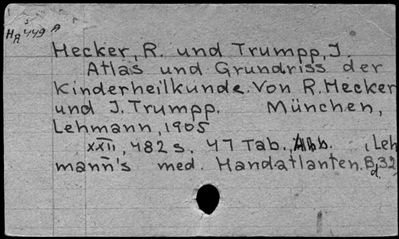 HA 449 A
Hecker, R. und Trumpp, J.
Atlas und Grundriss der
Kinderheilkunde. Von R. Hecker
und J. Trumpp. München,
Lehmann, 1905
XXII, 482 s. 47 Tab., Abb. (Leh
mann's med. Handatlanten. Bd, 32